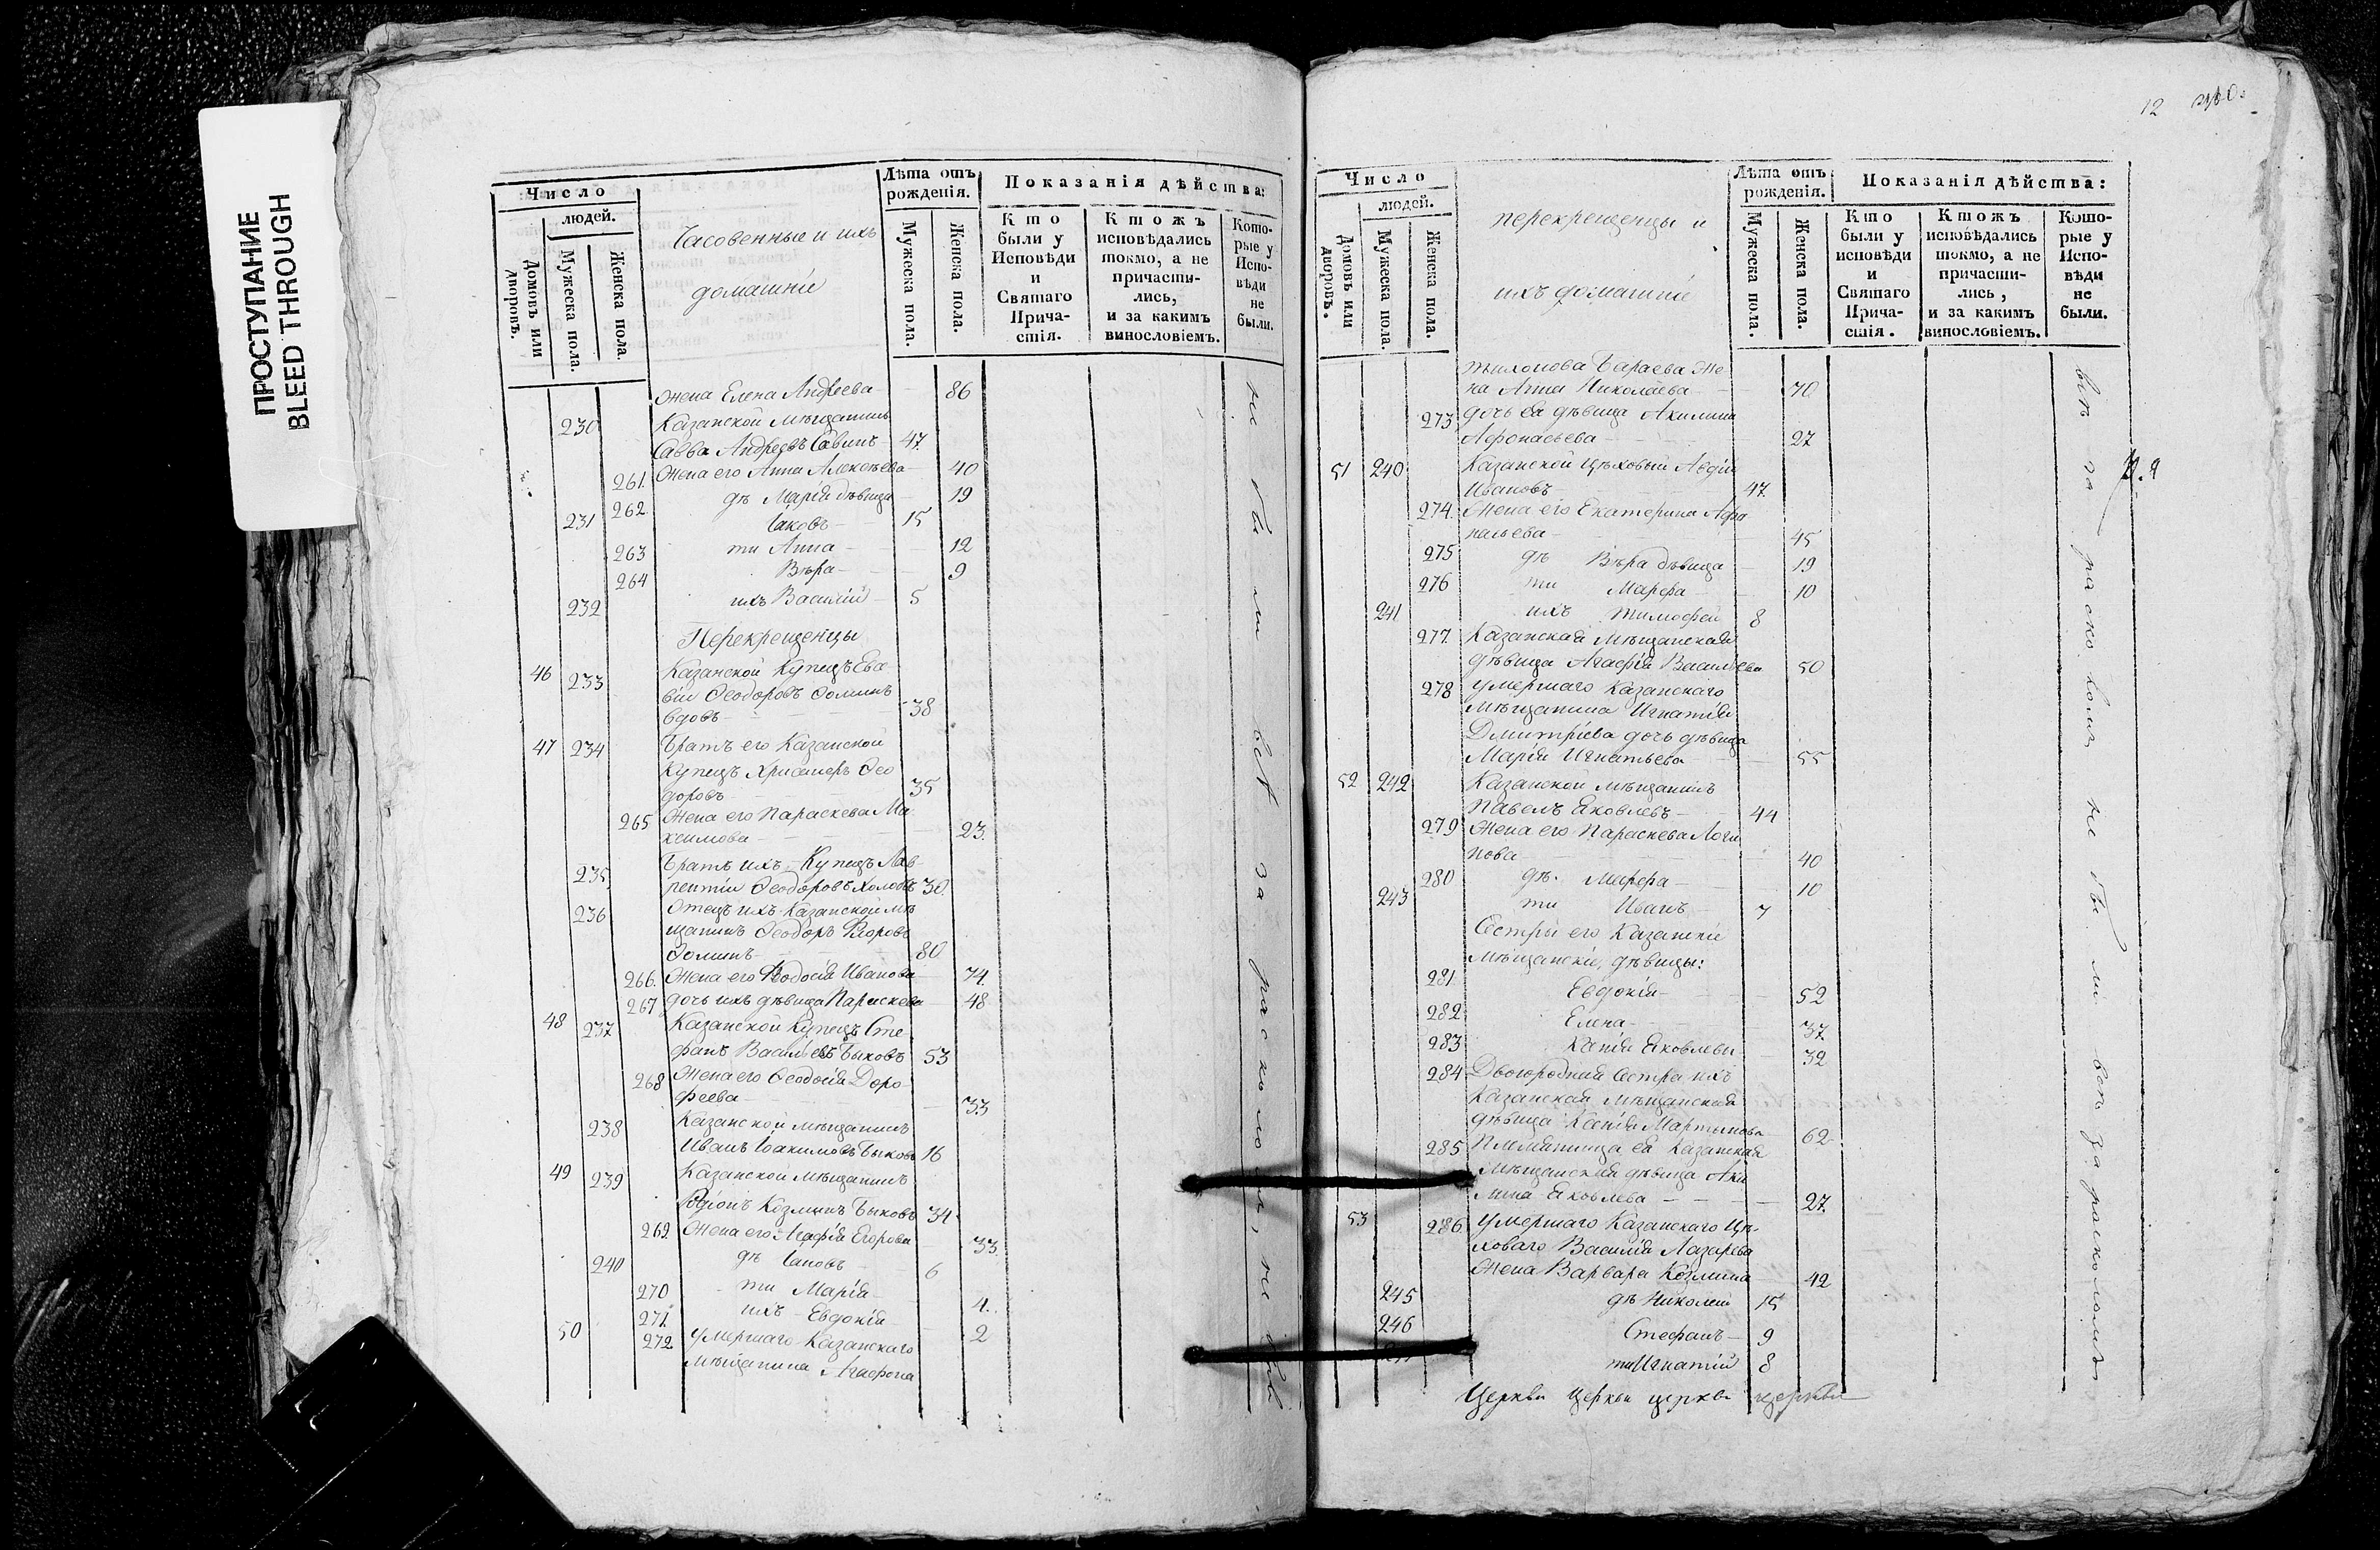 ПРОСТУПАНИЕ
BLEED THROUGH
Число
людей.
Домовъ или дворовъ.
Мужеска пола.
Женска пола.
Часовенные и ихъ
домашніе
Лѣта отъ рожденія.
Мужеска пола.
Женска пола.
Показанія дѣйства:
Кто были у Исповѣди и Святаго Прича-стія.
Ктожъ исповѣдались токмо, а не причасти-лись, и за какимъ винословіемъ.
Кото-рые у Испо-вѣди не были.
жена Елена Андреева 86
230 Казанской мѣщанинъ
Савва Андреевъ Савинъ 47.
261. Жена его Анна Алексѣева 40
262 дѣ Марія дѣвица 19
231 Іаковъ 15
263 ти Анна 12
264 Вѣра 9
232 ихъ Василій 5
Перекрещенцы
46 233 Казанской Купецъ Ева
віи Ѳеодоровъ Ѳоминъ
вдовъ 38
47 234 Братъ его Казанской
Купецъ Ѳео
доровъ 35
265 Жена его Параскева Ма
ксимова 23.
235 Братъ ихъ Купецъ Лав-
рентіи Ѳеодоровъ холостъ 30.
236 Отецъ ихъ Казанской мѣ
щанинъ Ѳеодоръ
Ѳоминъ 80
266. Жена его Ѳеодосія Иванова 74.
267 дочь ихъ дѣвица Параскева 48
48 237 Казанской Купецъ Сте
фанъ Васильевъ Быковъ 53
268 Жена его Ѳеодосія Доро
феева 33
238 Казанской мѣщанинъ
Иванъ Іоакимовъ Быковъ 16
49 239 Казанской мѣщанинъ
Родіонъ Козминъ Быковъ 34.
269 Жена его Агафія Егорова 33.
240 дѣ Іаковъ 6
270 ти Марія 4.
271. ихъ Евдокія 2
50 272 Умершаго Казанскаго
мѣщанина Агафона
не бы ли всѣ за расколомъ, не были
12
Число
людей.
Домовъ или дворовъ.
Мужеска пола.
Женска пола.
перекрещенцы и
ихъ домашніе
Лѣта отъ рожденія.
Мужеска пола.
Женска пола.
Показанія дѣйства:
Кто были у исповѣди и Святаго Прича-стія.
Ктожъ исповѣдались токмо, а не причасти-лись, и за какимъ винословіемъ.
Кото-рые у Испо-вѣди не были.
Же
на Анна Николаева 70
273 дочь ея дѣвица Акилина
Афонасьева 27
51 240 Казанской цѣховый Авдій
Ивановъ 47.
274. Жена его Екатерина Афо
насьева 45
275 дѣ Вѣра дѣвица 19
276 ти Марфа 10
241 ихъ Тимофей 8
277. Казанская мѣщанская
дѣвица Агафія Васильева 50
278 Умершаго Казанскаго
мѣщанина Игнатія
Дмитріева дочь дѣвица
Марія Игнатьева 55
52 242 Казанской мѣщанинъ
Павелъ Яковлевъ 44
279 Жена его Параскева Логи
нова 40
280 дѣ. Марфа 10
243 ти Иванъ 7
Сестры его Казанскіе
мѣщанскіе дѣвицы:
281 Евдокія 52
282 Елена 37.
283 Ксенія Яковлевы 32
284 Двоюродная Сестра ихъ
Казанская мѣщанская
дѣвица Ксенія Мартынова 62
285 Племянница ея Казанская
мѣщанская дѣвица Аки
лина Яковлева 27.
53 286. Умершаго Казанскаго Цѣ-
ховаго Василія Лазарева
Жена Варвара Козмина 42
245 дѣ Николай 15
246 Стефанъ 9
ти Игнатій 8
всѣ за расколомъ не бы ли всѣ за расколомъ
Церкви Церкви церкви церкви